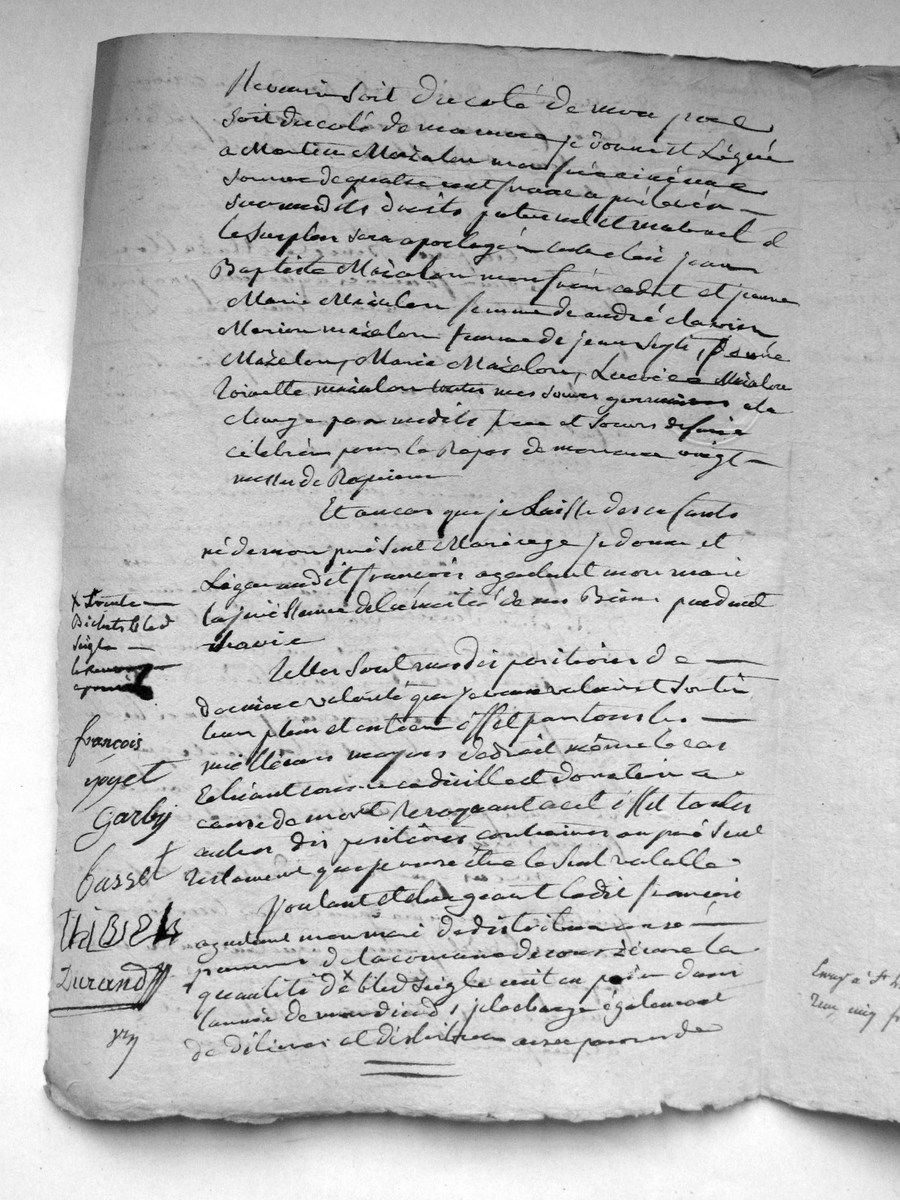 soit du coté de mon pere
soit du coté de ma mere je donne et Légue
a Martin Mazalon mon frère ainé une
somme de quatre cent francs a prélever
sur mesdits droits paternel et maternel et
le surplus sera partagé entre Jean
Baptiste Mazalon mon frère cadet et jeanne
Marie Mazalon femme de andré
Marion mazalon femme de jean
Mazalon, Marie Mazalon, Mazalon
Toinette mazalon toutes mes soeurs germaines a la
charge par mesdits frere et soeurs de faire
célébrer pour le Repos de mon ame vingt
messes de Requiem
Et au cas que je Laisse des enfants
né de mon présent Mariage je donne et
Légue audit françois agadant mon mari
la jouissance de la moitié de mes Biens pendant
sa vie
Telles sont mes dispositions de
derniere volonté que je veux valoir et sortir
leur plein et entier effet par tous les
meilleurs moyens de droit même le cas
échéant comme codicille et donation a
cause de mort Revoquant a cet effet toutes
autres dispositions contraires au présent
testament que je veux être le seul valable
Voulant et chargeant ledit françois
agadant mon mari de distribuer aux
pauvres de la comune de la
quantité de x bled seigle cuit en pain dans
l'année de mon décéd, je le charge également
de délivrer et distribuer aux pauvres de
x trente
Bichets bled
Seigle
françois
Garby
basset
Durand